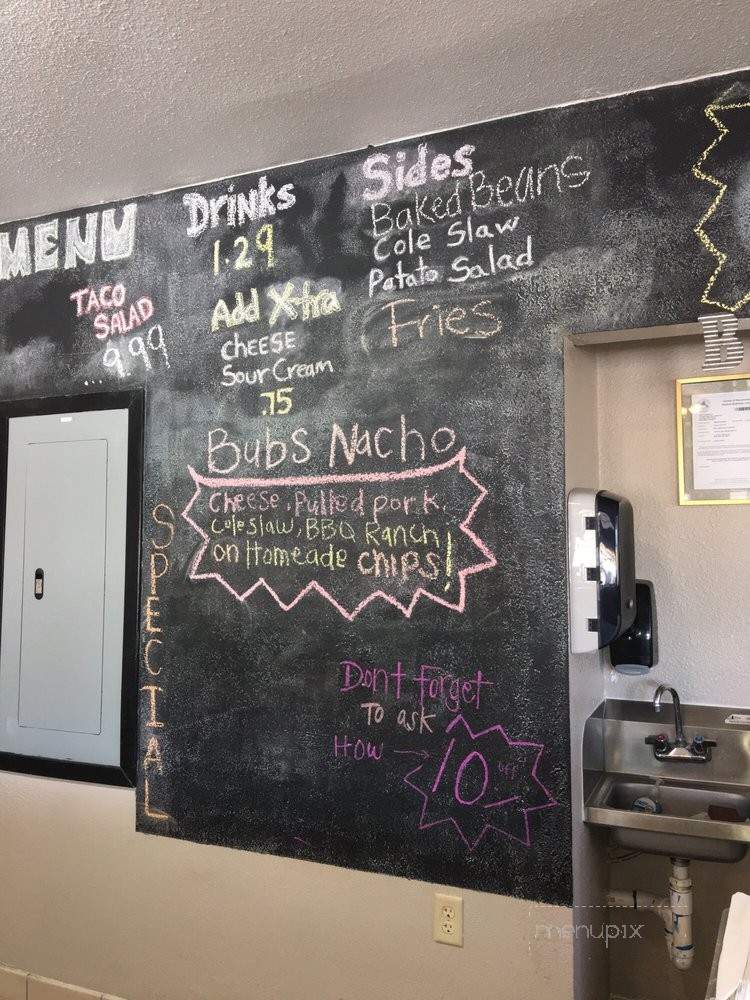 MENU
TACO
SALAD
...9.99
Drinks
1.29
Add X-tra
cheese
Sour Cream
.75
Sides
Baked Beans
Cole Slaw
Potato Salad
Fries
Bubs Nacho
cheese, Pulled pork,
Coleslaw, BBQ Ranch
on Homeade chips!
SPECIAL
Dont forget
To ask
How →
10 off
B
menupix